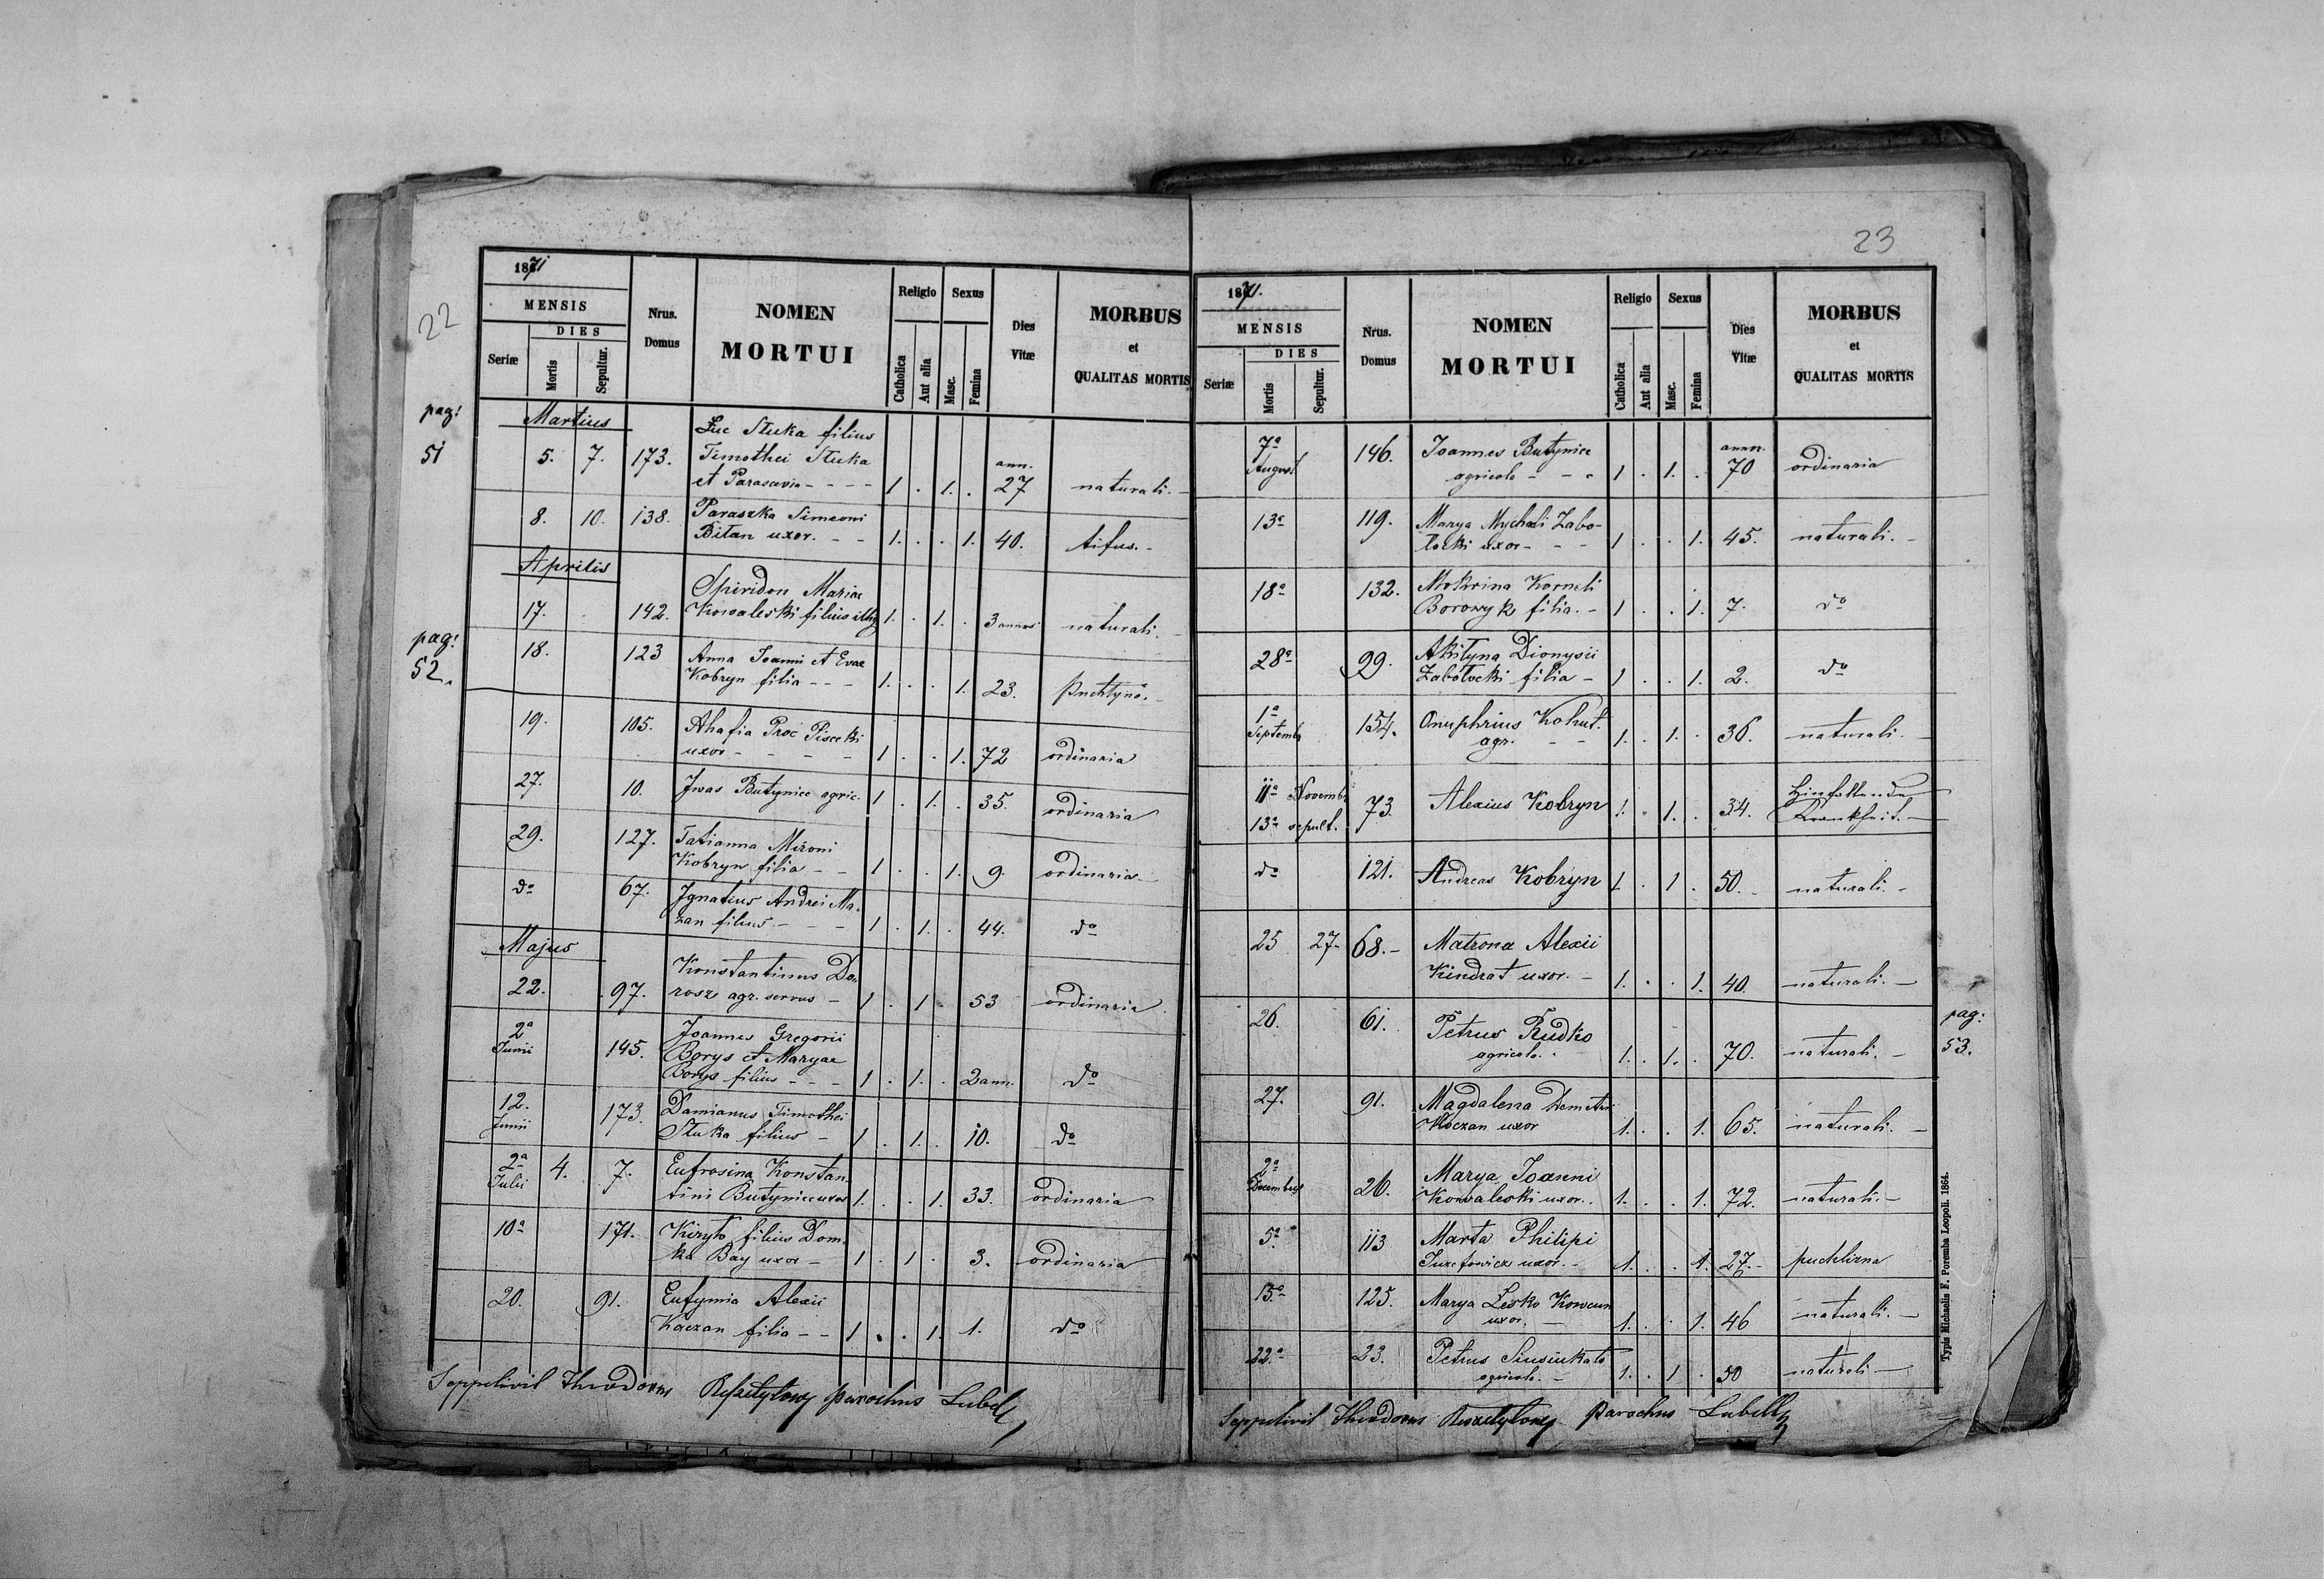 22
1871
MENSIS
Seriæ
DIES
Mortis
Sepultur.
Nrus.
Domus
NOMEN
MORTUI
Religio
Catholica
Aut alia
Sexus
Masc.
Femina
Dies
Vitæ
MORBUS
et
QUALITAS MORTIS
pag:
51
Martius
Luc Stuka filius
5. 7. 173. Timothei Stuka ann.
et Parascevia - - - - 1 . 1. . 27 naturali. -
8. 10. 138. Paraszka Simeoni
Bitan uxor. - - 1. . . 1. 40. tifus. -
Aprilis
Spiridon Mariae
17. 142. Kowaleski filius illeg 1. . 1. . 3 annos naturali.
pag:
52.
18. 123 Anna Joanni et Evae
Kobryn filia - - - 1. . . 1. 23.
19. 105. Ahafia Proc Pisecki
uxor - - - - 1 . . 1. 72 ordinaria
27. 10. Jwas Butynice agric. 1 . 1. . 35. ordinaria
29. 127. Tatianna Mironi
Kobryn filia - - 1 . . 1. 9. ordinaria
do 67. Jgnatius Andrei Ma-
zan filius - - - 1 . 1. . 44. do
Majus
Konstantinus Do-
22. 97. rosz agr. servus - 1 . 1 . 53 ordinaria
2a
Junii
145. Joannes Gregorii
Borys et Maryae
Borys filius - - - 1 . 1. . 2 ann. do
12.
Junii
173. Damianus Timothei
Stuka filius - 1 . 1. . 10. do
2a
Julii
4. 7. Eufrosina Konstan-
tini Butynice uxor 1. . . 1. 33. ordinaria
10a 171. Kiryło filius Dom-
ka Bay uxor - 1 . 1 . 3. ordinaria
20. 91. Eufymia Alexii
Kaczan filia - - 1 . . 1. 1. do
Seppelivit Theodorus Reszetyłowy parochus Lubell
23
1871.
MENSIS
Seriæ
DIES
Mortis
Sepultur.
Nrus.
Domus
NOMEN
MORTUI
Religio
Catholica
Aut alia
Sexus
Masc.
Femina
Dies
Vitæ
MORBUS
et
QUALITAS MORTIS
7a
August
146. Joannes Butynice annor.
agricola - - - 1 . 1. . 70 ordinaria
13a 119. Marya Mychali Zabo-
locki uxor - - - 1 . . 1. 45. naturali. -
18a 132. Mokrina Korneli
Borowyk filia. - 1 . . 1. 7. do
28a 99. Akilyna Dionysii
Zabołocki filia - 1 . . 1. 2. do
1a
Septembr
154. Onuphrius Kohut.
agr. - - 1. . 1. . 36. naturali. -
11a Novemb
13a sepult. 73. Alexius Kobryn 1. . 1. . 34. Hinfallende
Krankheit. -
do 121. Andreas Kobryn 1 . 1 . 50. - naturali. -
25 27. 68. - Matrona Alexii
Kindrat uxor. - 1. . . 1. 40. naturali. -
26. 61. Petrus Rudko
agricola. 1. . 1. . 70. naturali. -
pag:
53.
27. 91. Magdalena Demetri
Kaczan uxor 1. . . 1. 65. naturali. -
2a
Decembris
26. Marya Joanni
Kowaleski uxor. 1. . . 1. 72. naturali. -
5a 113 Marta Philipi
Jurefowicz uxor. - 1. . . 1. 27. - puchlizna
15a 125. Marya Lesko Kowcun
uxor. - 1. . . 1. 46 naturali. -
22a 23. Petrus Siusiukało
agricola. - 1. . 1 . 50 naturali -
Seppelivit Theodorus Reszetyłowy parochus Lubell
Typis Michaelis F. Poremba Leopoli. 1864.